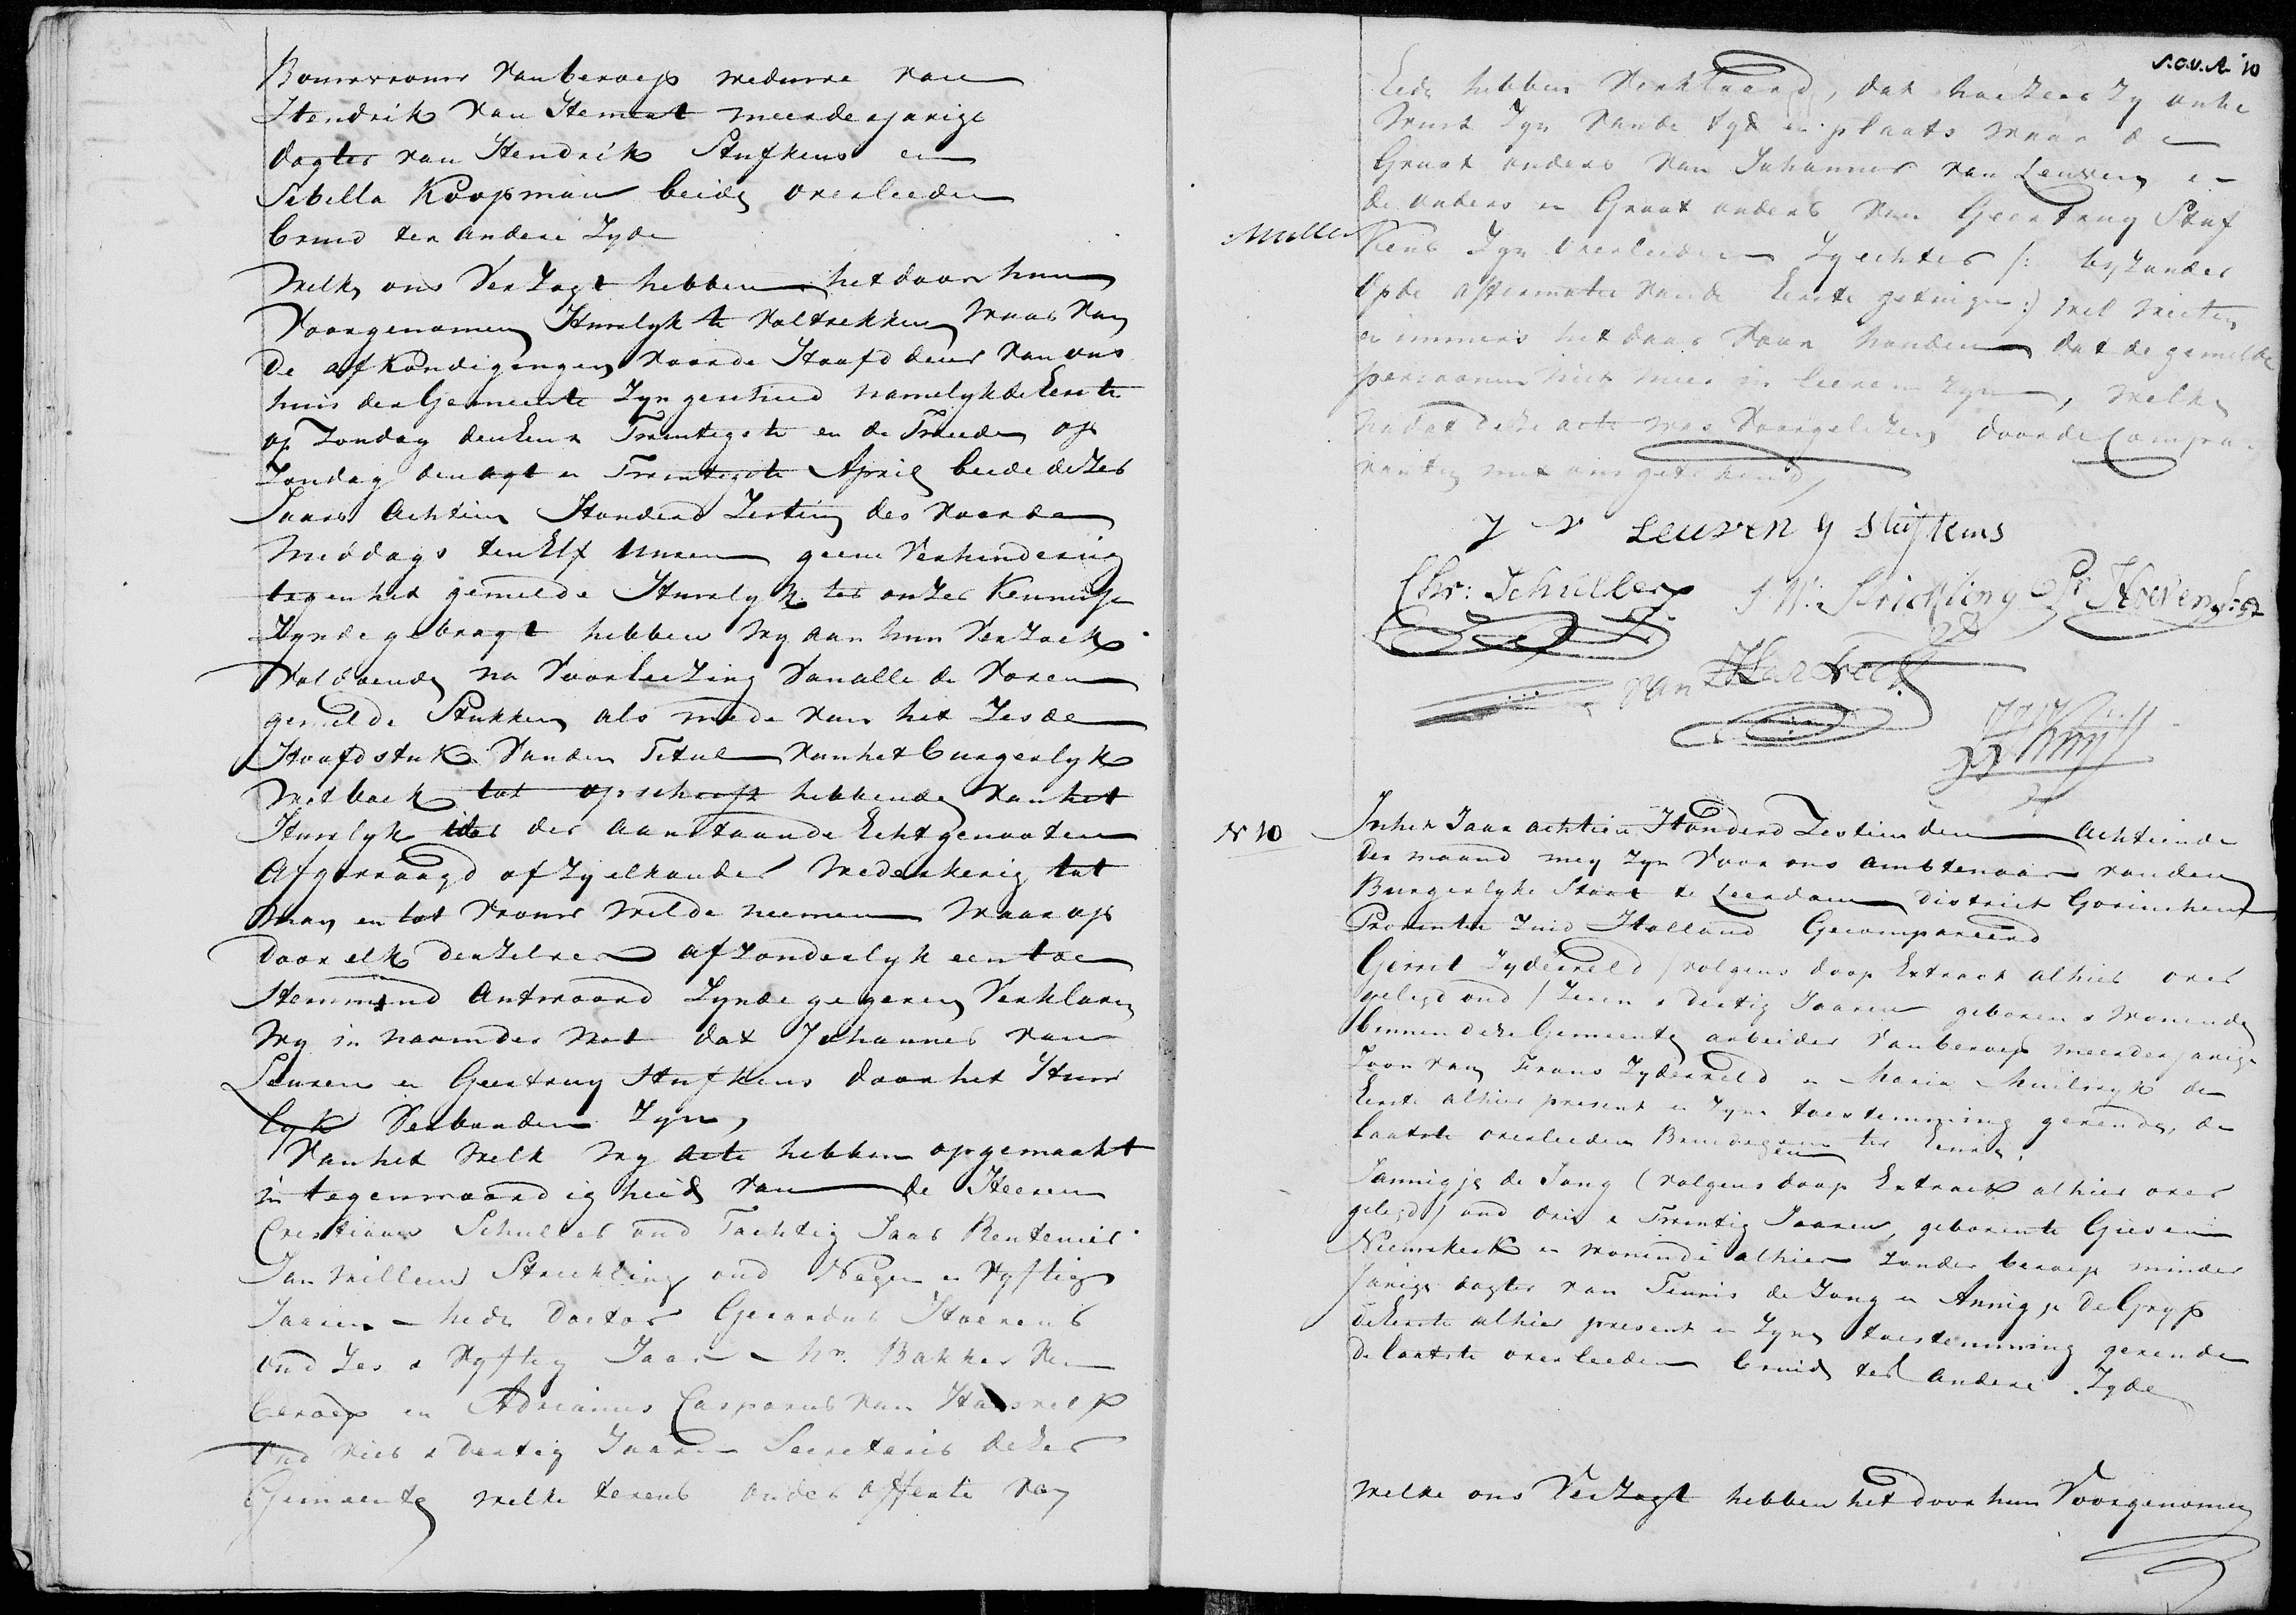 Bouwvrouw van beroep weduwe van
Hendrik van Hemert meerderjarige
dogter van Hendrik Stufkens en
Sebella Koopman beide overleeden
bruid ter andere Zyde
Welke ons Verzogt hebben het door hun
Voorgenomen Huwelyk te Voltrekken Waar van
de afkondigingen voor de Hoofd deur van ons
huis der Gemeente Zyn geschied namelyk de Eerste
op Zondag den Een & Twintigste en de Tweede op
Zondag den agt & Twintigste April beide dezes
Jaars Achtien Honderd Zestien des voorde
Middags ten Elf Uuren geene Verhindering
tegen het gemelde Huwelyk ter onzer Kennisse
Zynde gebragt hebben Wy aan hun Verzoek
Voldoende na Voorleezing Van alle de Voren
gemelde Stukken als mede van het Zesde
Hoofdstuk Van den Titul van het burgerlyk
Wetboek tot opschrift hebbende van het
Huwlyk der aanstaande Echtgenooten
Afgevraagd of Zy elkander Wederkerig tot
Man en tot Vrouw wilde neemen Waar op
door elk derzelver afzonderlyk een toe
Stemmend Antwoord Zynde gegeven Verklaren
Wy in naam der Wet dat Johannes van
Leuven en Geertruy Stufkens door het Huw
lyk Verbonden Zyn,
Van het Welk Wy Acte hebben opgemaakt
in tegenwoordigheid van de Heeren
Cristiaan Schuller oud Tachtig Jaar Rentenier
Jan Willem Strickling oud Negen en Vyftig
Jaaren Mede doctor Gerardus Hoevens
oud Zes & Vyftig Jaar Mr. Bakker Van
beroep en Adrianus Casparus van Haarvelt
oud vier & dertig Jaaren Secretaris dezer
Gemeente welke tevens onder offerte van
S.O.V.A. 10
Eede hebben Verklaard, dat hoezeer Zy onbe
Wust Zyn Van de tyd en plaats waar de
Groot ouders van Johannes van Leuven en
de ouders en Groot ouders van Geertruy Stuf
Muller
kens Zyn Overleeden Zy echter /: byzonder
Op de affirmatie van de Eerste getuige :/ wel weeten
en immers het daar Voor houden dat de gemelde
persoonen niet meer in leeven Zyn, welke
na dat deze acte was Voorgeleezen door de Compa-
ranten met ons getekend
J v Leuven G Stufkens
Chr: Schuller J.W. Strickling G: Hoevens
van Haarvelt
N 10
In het Jaar achtien Honderd Zestien den Achtiende
der maand mey Zyn Voor ons ambtenaar van den
Burgerlyke Staat te Leerdam district Gorinchem
Provintie Zuid Holland Gecompareerd
Gerrit Zyderveld /volgens doop Extract alhier over
gelegd oud / Zeven & dertig Jaaren geboren & wonende
binnen deze Gemeente arbeider van beroep meerderjarige
Zoon van Frans Zyderveld en Maria Muilwyk de
Eerste alhier present en Zyne toestemming gevende, de
laatste overleeden Bruidegom ter Eenre,
Jannigje de Jong (volgens doop Extract alhier over
gelegd) oud drie & Twintig Jaaren, geboren te Giesen
Nieuwkerk en wonende alhier zonder beroep minder
jarige dogter van Teunis de Jong en Annigje de Gryp
de Eerste alhier present en Zyne toestemming gevende
de laatste overleeden bruid ter andere Zyde
Welke ons Verzogt hebben het door hun Voorgenomen